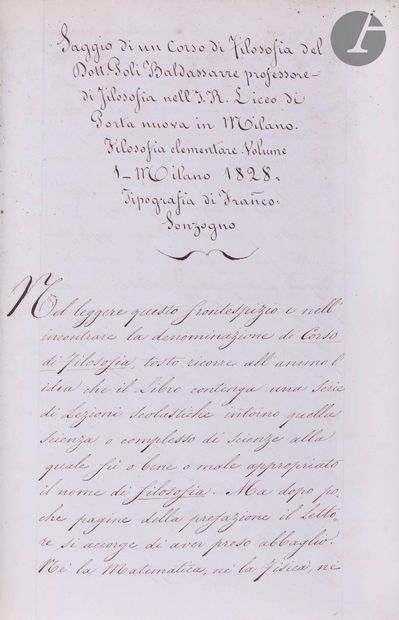 Saggio di un Corso di Filosofia del
Dott. Poli Baldassarre professore
di Filosofia nell'I. R. Liceo di
Porta nuova in Milano.
Filosofia elementare. Volume
1 - Milano 1828.
Tipografia di Franco.
Sonzogno
Nel leggere questo frontespizio e nell'
incontrare la denominazione di Corso
di Filosofia, tosto ricorre all'animo l'
idea che il Libro contenga una serie
di Lezioni scolastiche intorno quella
scienza o complesso di scienze alla
quale fù o bene o male appropriato
il nome di filosofia. Ma dopo po,
che pagine della prefazione il Letto=
re, si accorge di aver preso abbaglio.
Nè la Matematica, nè la Fisica, nè